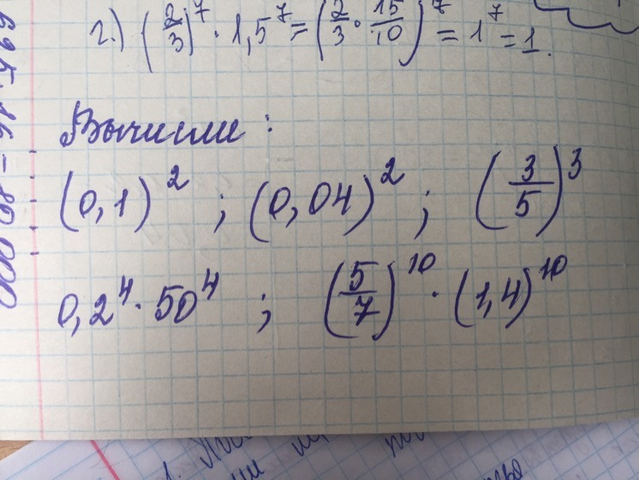 2.) (2/3)^7 · 1,5^7 = (2/3 · 15/10)^7 = 1^7 = 1.
Вычисли:
(0,1)^2 ; (0,04)^2 ; (3/5)^3
0,2^4 · 50^4 ; (5/7)^10 · (1,4)^10